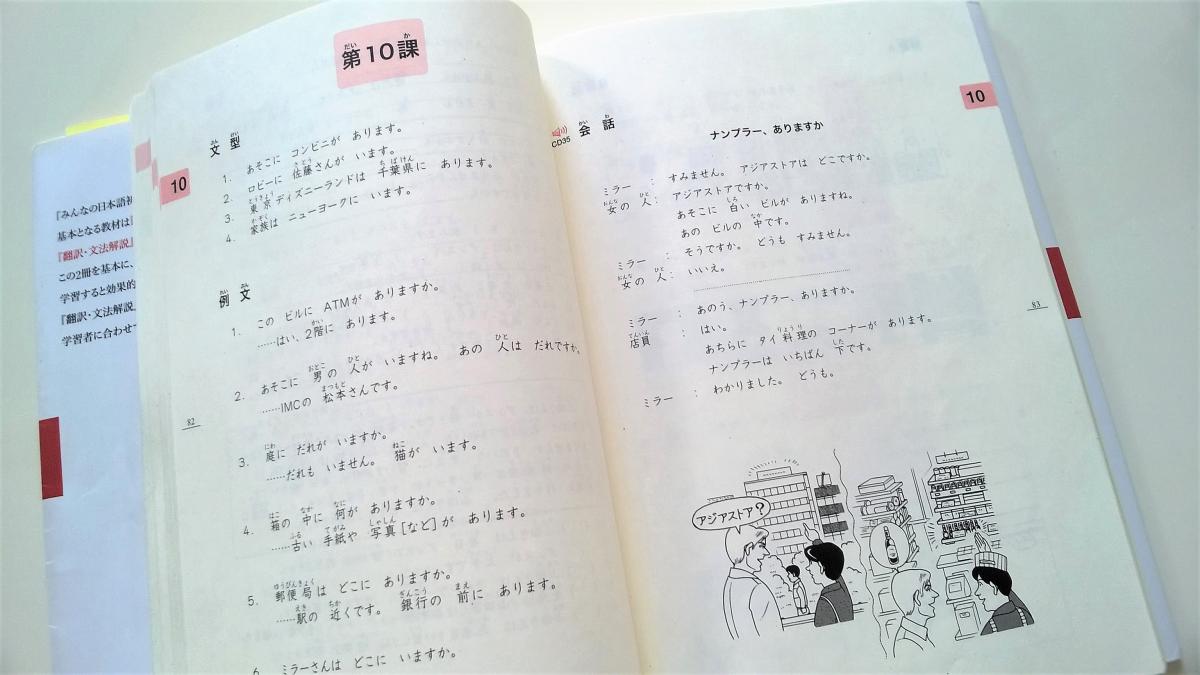 『みんなの日本語初
基本となる教材は『
『翻訳・文法解説』
この2冊を基本に、
学習すると効果的
『翻訳・文法解説』
学習者に合わせて
10
82
だい か
第10課
ぶん けい
文 型
1. あそこに コンビニが あります。
さとう
2. ロビーに 佐藤さんが います。
とうきょう ち ばけん
3. 東京ディズニーランドは 千葉県に あります。
かぞく
4. 家族は ニューヨークに います。
れい ぶん
例 文
1. この ビルに ATMが ありますか。
かい
……はい、2階に あります。
おとこ ひと ひと
2. あそこに 男の 人が いますね。 あの 人は だれですか。
まつもと
……IMCの 松本さんです。
にわ
3. 庭に だれが いますか。
ねこ
……だれも いません。 猫が います。
はこ なか なに
4. 箱の 中に 何が ありますか。
ふる てがみ しゃしん
……古い 手紙や 写真[など]が あります。
ゆうびんきょく
5. 郵便局は どこに ありますか。
えき ちか ぎんこう まえ
……駅の 近くです。 銀行の 前に あります。
6. ミラーさんは どこに いますか。
10
83
CD35
かい わ
会 話
ナンプラー、ありますか
ミラー : すみません。 アジアストアは どこですか。
おんな ひと
女の 人: アジアストアですか。
しろ
あそこに 白い ビルが ありますね。
なか
あの ビルの 中です。
ミラー : そうですか。 どうも すみません。
おんな ひと
女の 人: いいえ。
ミラー : あのう、ナンプラー、ありますか。
てんいん
店員 : はい。
りょうり
あちらに タイ料理の コーナーが あります。
した
ナンプラーは いちばん 下です。
ミラー : わかりました。 どうも。
アジアストア?